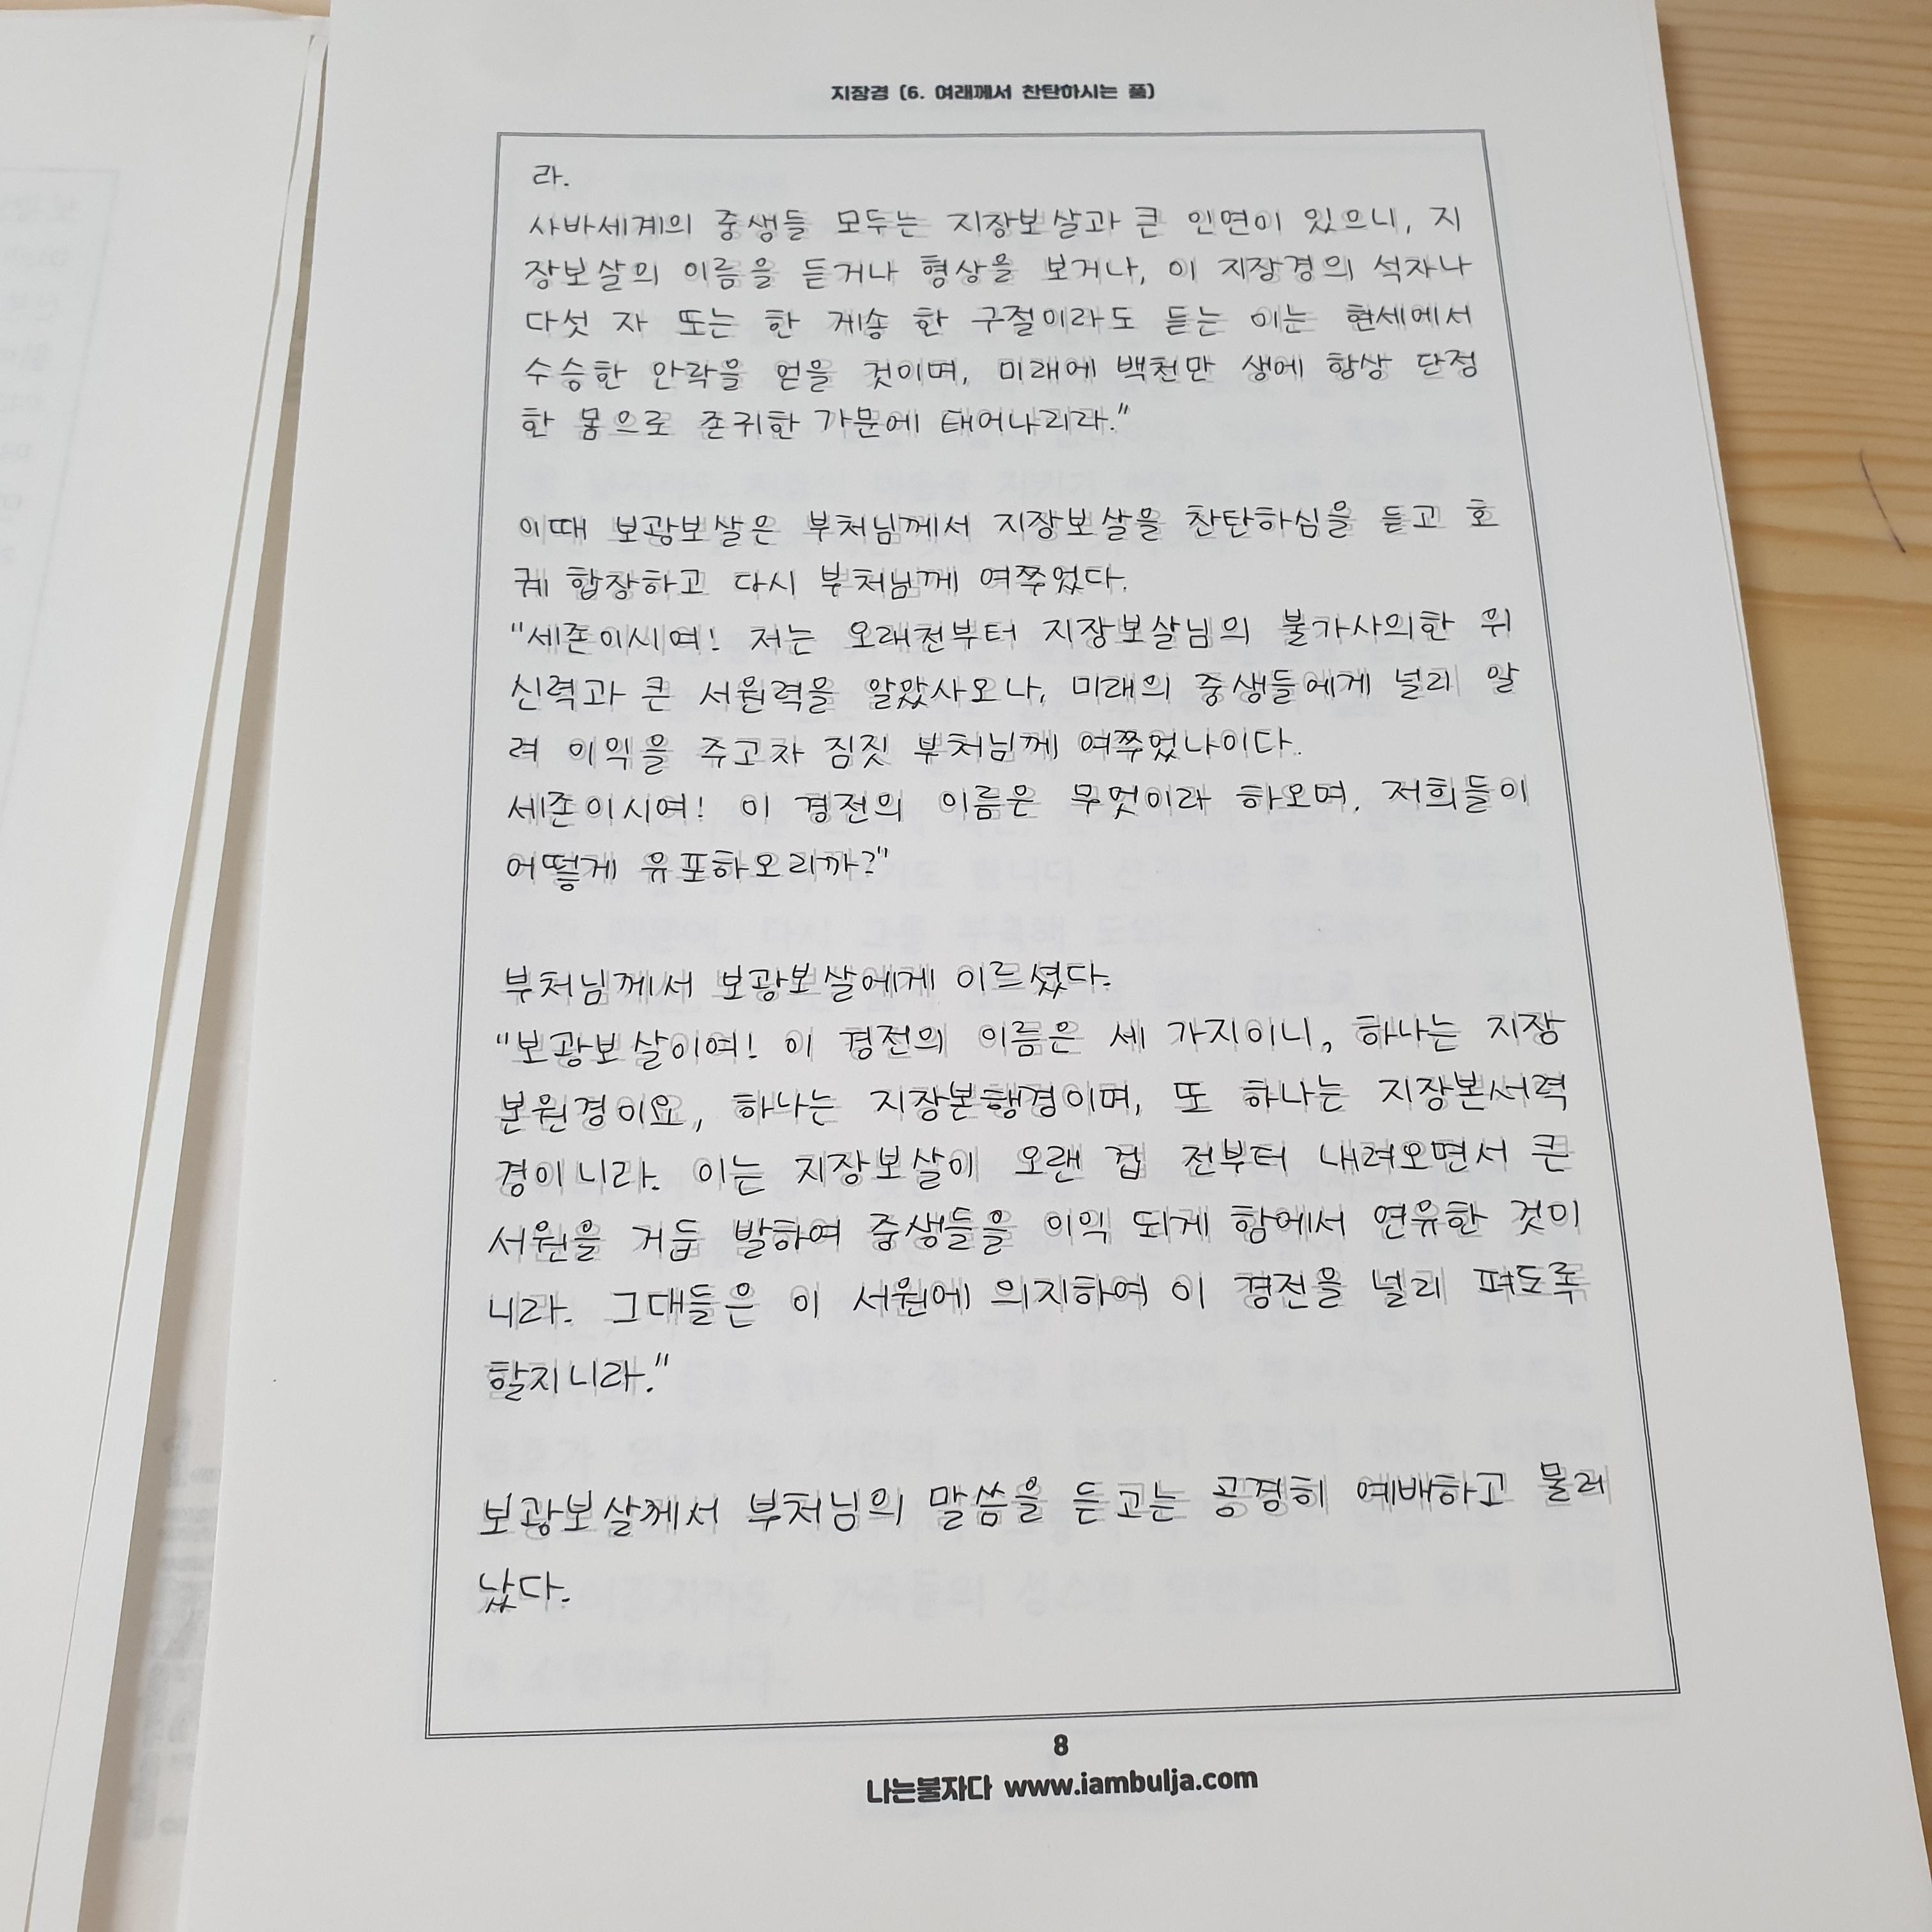 지장경 (6. 여래께서 찬탄하시는 품)
라.
사바세계의 중생들 모두는 지장보살과 큰 인연이 있으니, 지
장보살의 이름을 듣거나 형상을 보거나, 이 지장경의 석자나
다섯 자 또는 한 게송 한 구절이라도 듣는 이는 현세에서
수승한 안락을 얻을 것이며, 미래에 백천만 생에 항상 단정
한 몸으로 존귀한 가문에 태어나리라."
이때 보광보살은 부처님께서 지장보살을 찬탄하심을 듣고 호
궤 합장하고 다시 부처님께 여쭈었다.
"세존이시여! 저는 오래전부터 지장보살님의 불가사의한 위
신력과 큰 서원력을 알았사오나, 미래의 중생들에게 널리 알
려 이익을 주고자 짐짓 부처님께 여쭈었나이다.
세존이시여! 이 경전의 이름은 무엇이라 하오며, 저희들이
어떻게 유포하오리까?"
부처님께서 보광보살에게 이르셨다.
"보광보살이여! 이 경전의 이름은 세 가지이니, 하나는 지장
본원경이요, 하나는 지장본행경이며, 또 하나는 지장본서력
경이니라. 이는 지장보살이 오랜 겁 전부터 내려오면서 큰
서원을 거듭 발하여 중생들을 이익 되게 함에서 연유한 것이
니라. 그대들은 이 서원에 의지하여 이 경전을 널리 펴도록
할지니라."
보광보살께서 부처님의 말씀을 듣고는 공경히 예배하고 물러
났다.
8
나는불자다 www.iambulja.com